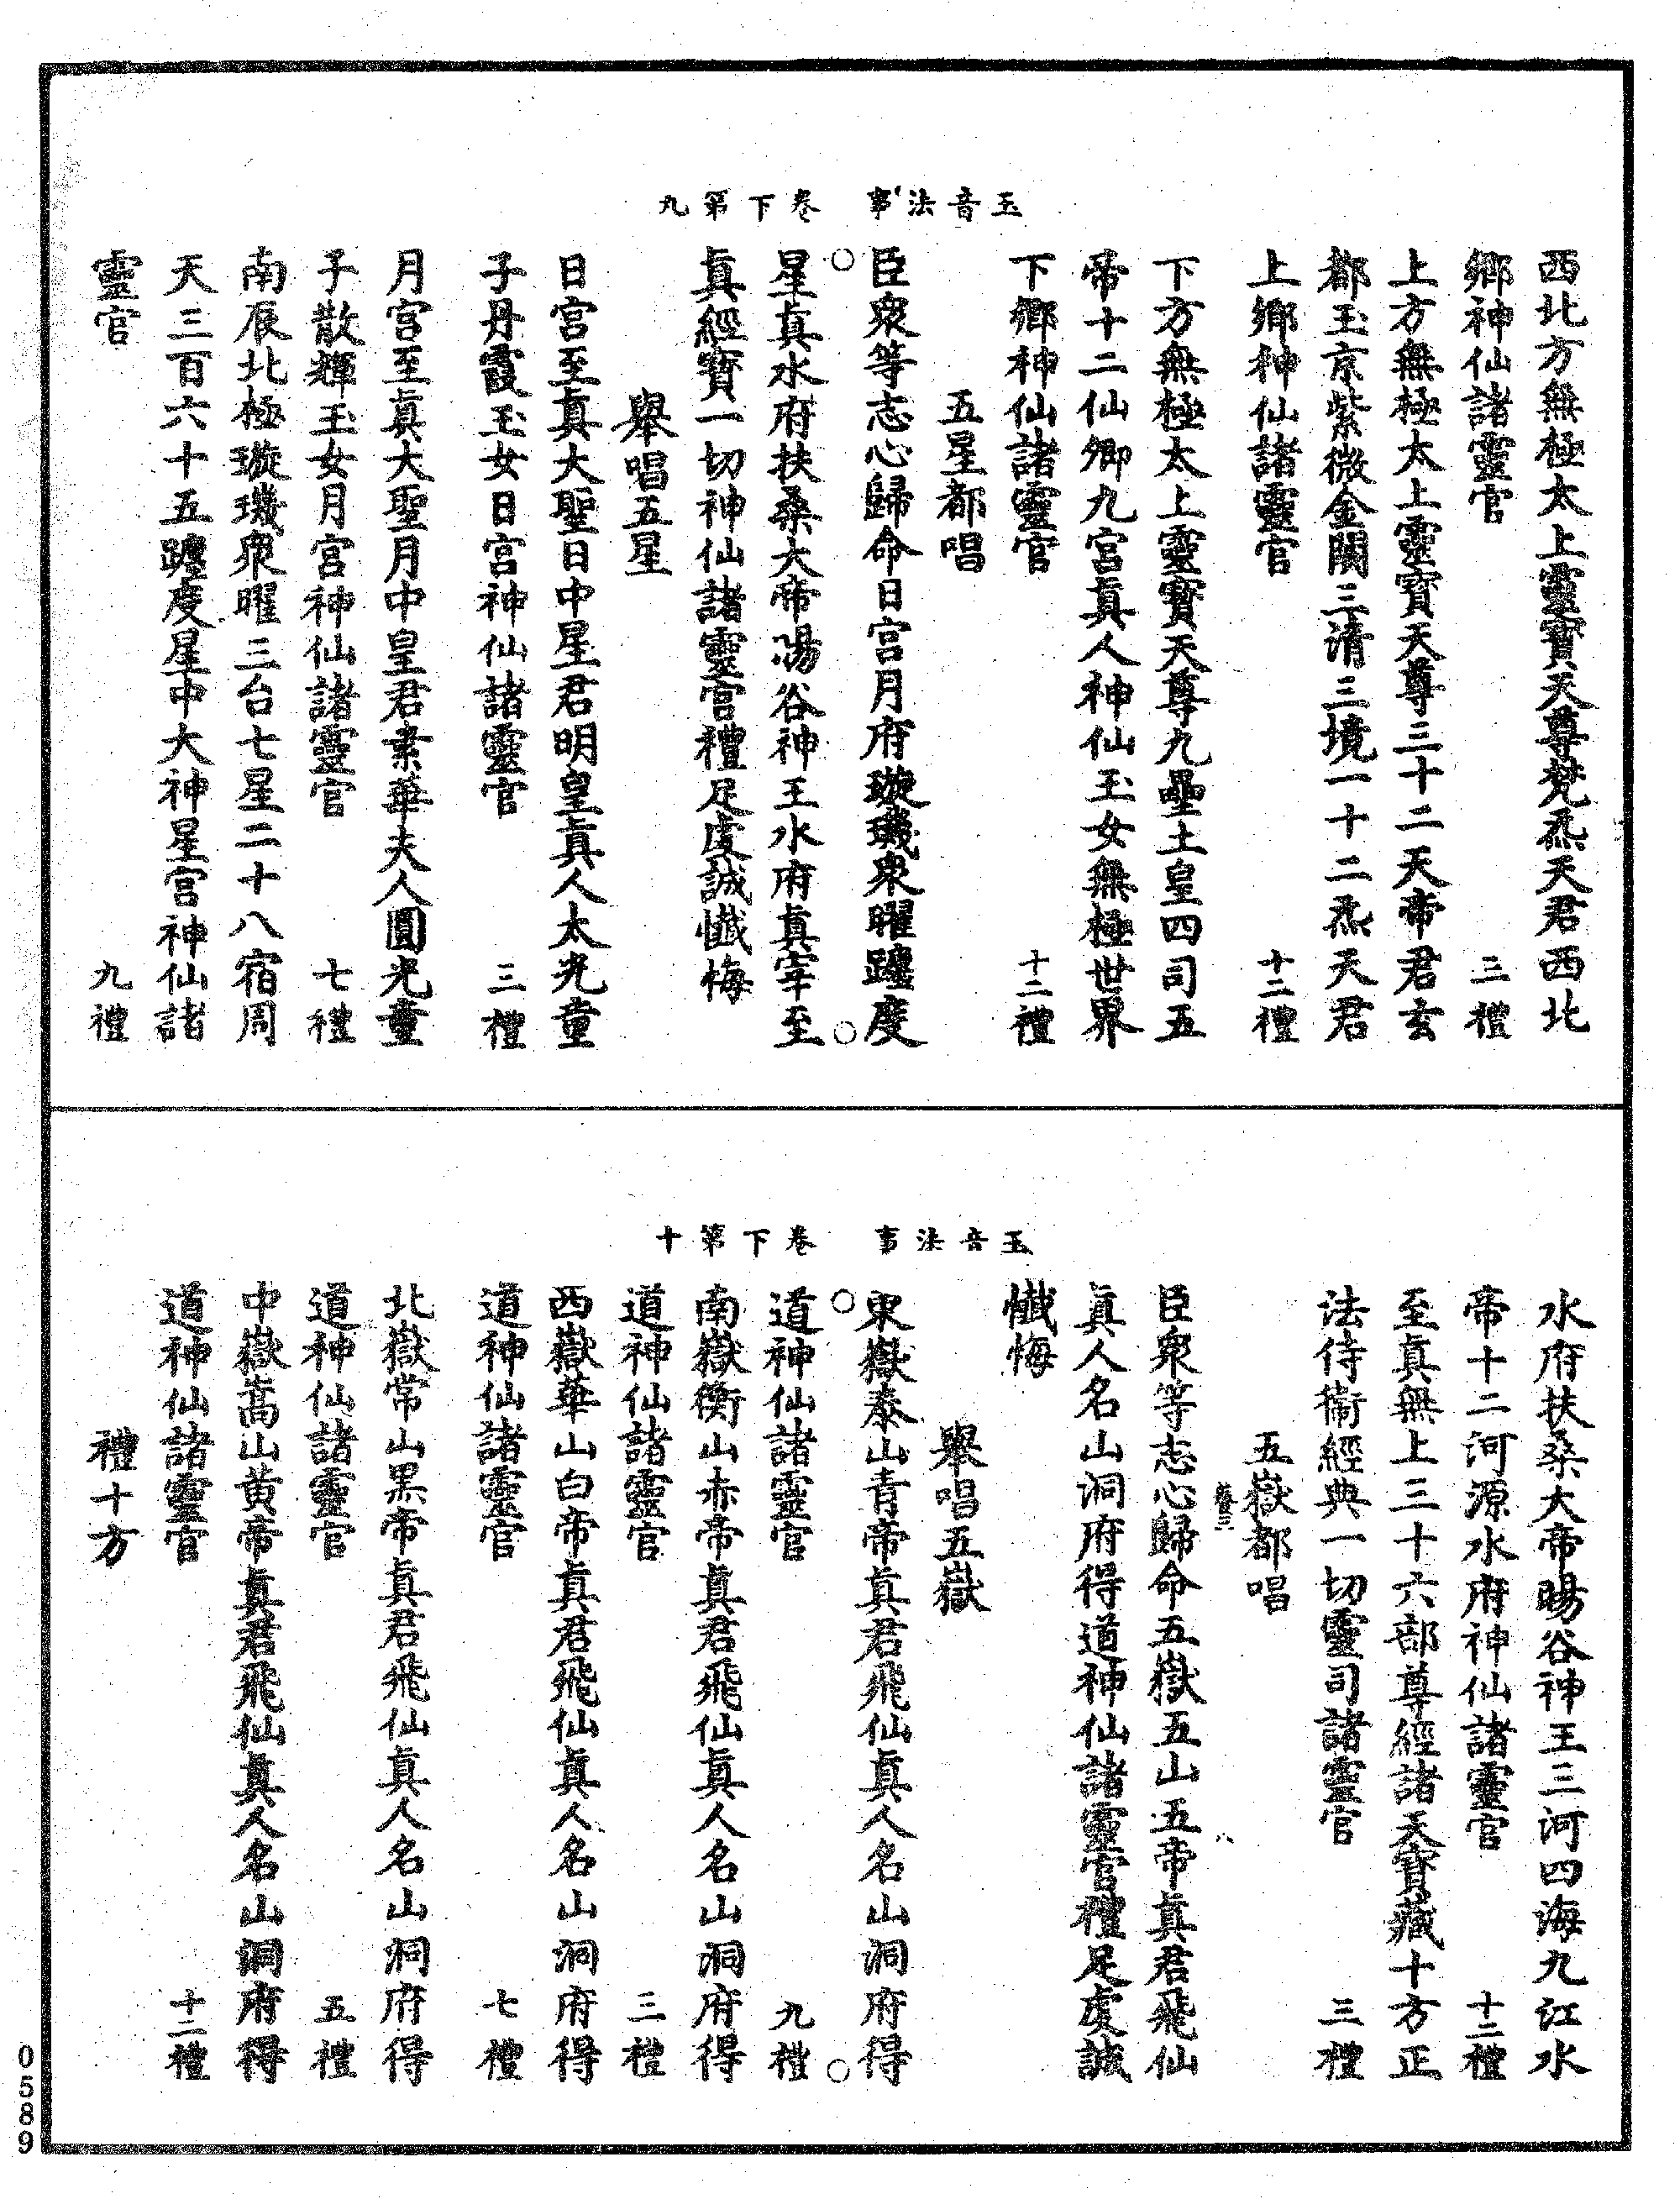 玉音法事　卷下第九
西北方無極太上靈寶天尊梵炁天君西北
鄉神仙諸靈官　三禮
上方無極太上靈寶天尊三十二天帝君玄
都玉京紫微金闕三清三境一十二炁天君
上鄉神仙諸靈官　十二禮
下方無極太上靈寶天尊九壘土皇四司五
帝十二仙卿九宮真人神仙玉女無極世界
下鄉神仙諸靈官　十二禮
五星都唱
臣衆等志心歸命日宮月府璇璣衆曜躔度
星真水府扶桑大帝湯谷神王水府真宰至
真經寶一切神仙諸靈官禮足虔誠懺悔
舉唱五星
日宮至真大聖日中星君明皇真人太光童
子丹霞玉女日宮神仙諸靈官　三禮
月宮至真大聖月中皇君素華夫人圓光童
子散輝玉女月宮神仙諸靈官　七禮
南辰北極璇璣衆曜三台七星二十八宿周
天三百六十五躔度星中大神星宮神仙諸
靈官　九禮
玉音法事　卷下第十
水府扶桑大帝暘谷神王三河四海九江水
帝十二河源水府神仙諸靈官　十二禮
至真無上三十六部尊經諸天寶藏十方正
法侍衛經典一切靈司諸靈官　三禮
五嶽都唱
八
臣衆等志心歸命五嶽五山五帝真君飛仙
真人名山洞府得道神仙諸靈官禮足虔誠
懺悔
舉唱五嶽
東嶽泰山青帝真君飛仙真人名山洞府得
道神仙諸靈官　九禮
南嶽衡山赤帝真君飛仙真人名山洞府得
道神仙諸靈官　三禮
西嶽華山白帝真君飛仙真人名山洞府得
道神仙諸靈官　七禮
北嶽常山黑帝真君飛仙真人名山洞府得
道神仙諸靈官　五禮
中嶽嵩山黃帝真君飛仙真人名山洞府得
道神仙諸靈官　十二禮
禮十方
0589